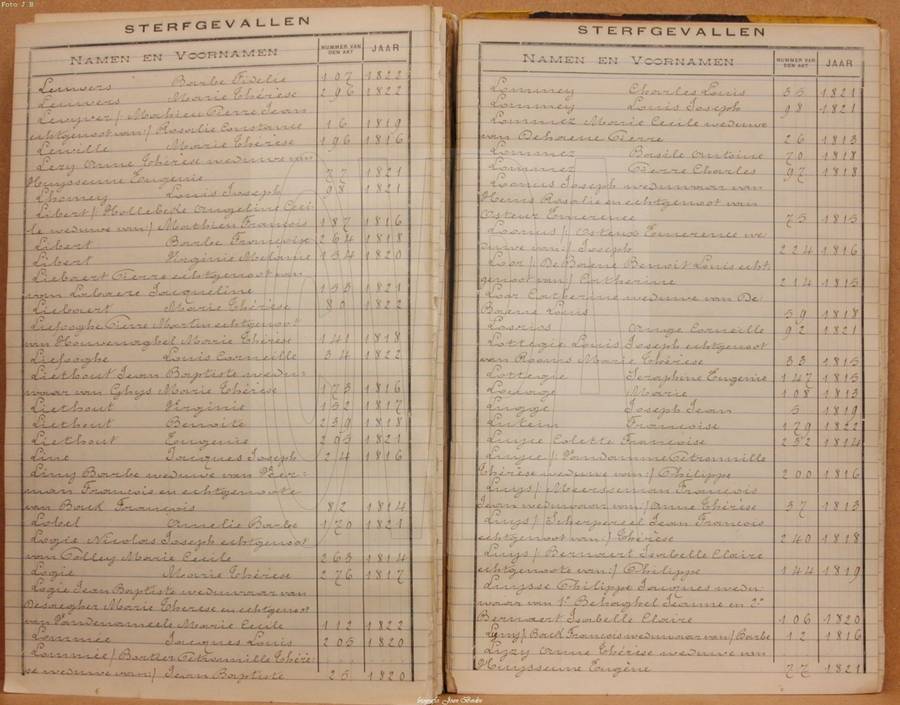 Foto J B
STERFGEVALLEN
NAMEN EN VOORNAMEN NUMMER VAN DEN AKT JAAR
Leuwers Barbe Fidelie 107 1822
Leuwers Marie Thérèse 296 1822
Lewyver / Mathieu Pierre Jean
echtgenoot van / Rosalie Constance 16 1819
Lewille Marie Thérèse 196 1816
Lezy Anne Thérèse weduwe van
Huyseune Eugenie 77 1821
Lhomey Louis Joseph 98 1821
Libert / Hollebede Angeline Ceci-
le weduwe van / Mathieu François 187 1816
Libert Barbe Françoise 264 1818
Libert Virginie Melanie 134 1820
Liebaert Pierre echtgenoot van
van Labaere Jacqueline 153 1821
Liebaert Marie Thérèse 80 1822
Liefooghe Pierre Martin echtgenoot
van Houwenaghel Marie Thérèse 141 1818
Liefooghe Louis Corneille 34 1822
Liethout Jean Baptiste wedu-
waar van Ghys Marie Thérèse 173 1816
Liethout Virginie 152 1817
Liethout Benoite 239 1818
Liethout Eugenie 205 1821
Line Jacques Joseph 24 1816
Liny Barbe weduwe van Peer-
man François en echtgenoote
van Bouk François 82 1814
Lobel Amelie Barbe 170 1821
Logie Nicolas Joseph echtgenoot
van Colley Marie Cecile 263 1814
Logie Marie Thérèse 276 1817
Logie Jean Baptiste weduwaar van
Desaegher Marie Therese en echtgenoot
van Vandenameele Marie Cecile 112 1822
Lommée Jacques Louis 205 1820
Lommée / Bartier Petronnille Thérè-
se weduwe van / Jean Baptiste 25 1820
STERFGEVALLEN
NAMEN EN VOORNAMEN NUMMER VAN DEN AKT JAAR
Lommey Charles Louis 35 1821
Lommey Louis Joseph 98 1821
Lommez Marie Cecile weduwe
van Dehaene Pierre 26 1813
Lommez Basèle Antoine 70 1818
Lommez Pierre Charles 97 1818
Loonus Joseph weduwaar van
Henis Rosalie en echtgenoot van
Osteur Emerence 75 1815
Loonus / Osteux Emerence we-
duwe van / Joseph 224 1816
Loor / De Baene Benoit Louis echt-
genoot van / Catherine 214 1815
Loor Catherine weduwe van De
Baene Louis 59 1818
Losrios Ange Corneille 92 1821
Lottegie Louis Joseph echtgenoot
van Rooms Marie Thérèse 33 1815
Lottegie Seraphine Eugenie 147 1815
Louage Marie 108 1813
Lugge Joseph Jean 5 1819
Lutein Françoise 179 1822
Luyce Colette Françoise 252 1814
Luyce / Vandamme Petronnille
Thérèse weduwe van / Philippe 200 1816
Luys / Meersseman François
Jean weduwaar van / Anne Thérèse 37 1813
Luys / Scherpereel Jean François
echtgenoot van / Thérèse 240 1818
Luys / Bernaert Isabelle Claire
echtgenoote van / Philippe 144 1819
Luysse Philippe Jacques wedu-
waar van 1e Behaghel Jeanne en 2e
Bernaert Isabelle Claire 106 1820
Lyny / Bouk François weduwaar van / Barbe 12 1816
Lyzy Anne Thérèse weduwe van
Huyseune Eugène 77 1821